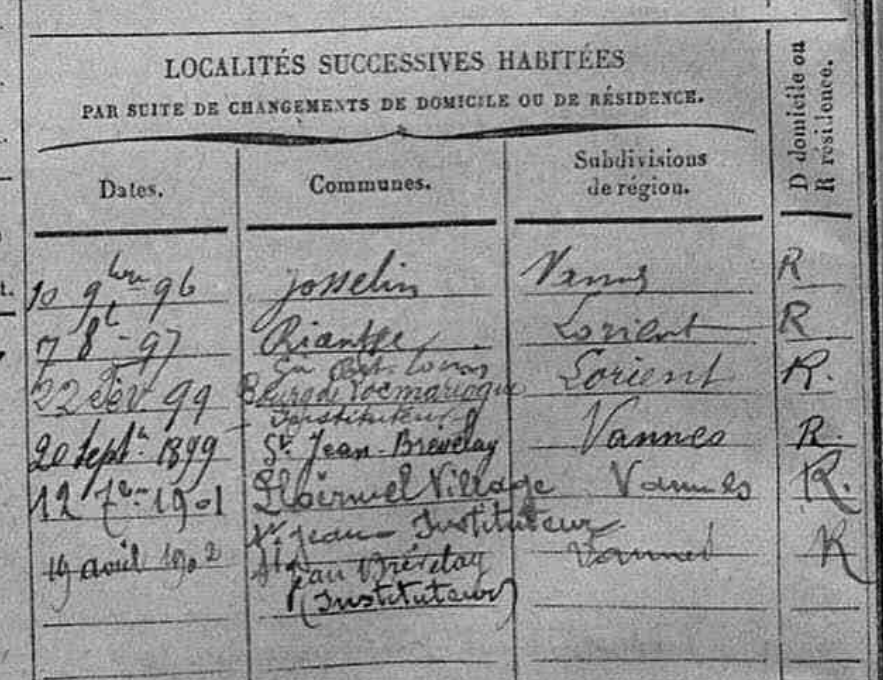 LOCALITÉS SUCCESSIVES HABITÉES
PAR SUITE DE CHANGEMENTS DE DOMICILE OU DE RÉSIDENCE.
D domicile ou
R résidence.
Dates.
Communes.
Subdivisions
de région.
10 9bre 96 Josselin Vannes R
7 8t 97 Riantec Lorient R
Port Louis
22 Fév 99 Bourg de Locmariaquer Lorient R.
Instituteur
20 Septb. 1899 St. Jean-Brevelay Vannes R.
12 7bre 1901 Ploërmel Village Vannes R.
St Jean Instituteur
19 avril 1902 St Jean Brévelay Vannes R
(Instituteur)